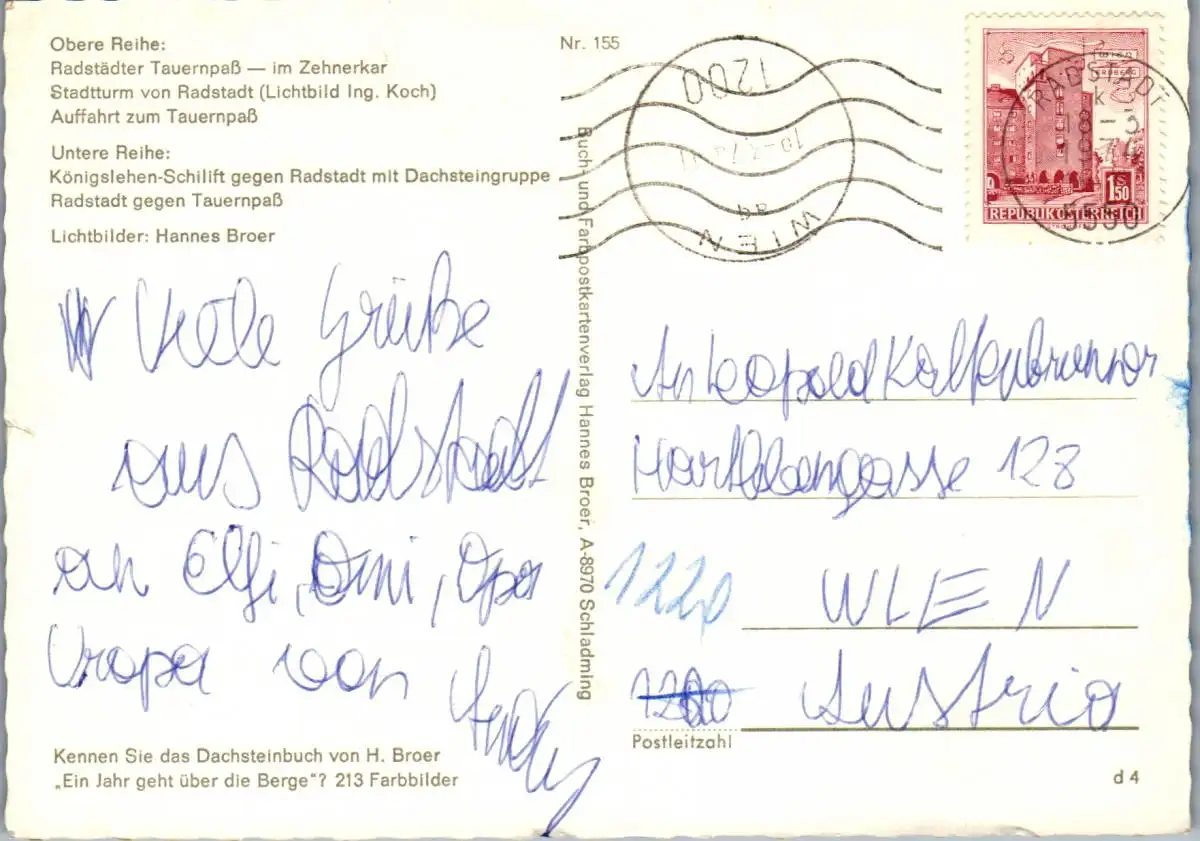 Obere Reihe:
Radstädter Tauernpaß — im Zehnerkar
Stadtturm von Radstadt (Lichtbild Ing. Koch)
Auffahrt zum Tauernpaß
Untere Reihe:
Königslehen-Schilift gegen Radstadt mit Dachsteingruppe
Radstadt gegen Tauernpaß
Lichtbilder: Hannes Broer
Viele Grüße
aus Radstadt
an Elfi, Omi, Opa
Uropa von
Andy
Kennen Sie das Dachsteinbuch von H. Broer
„Ein Jahr geht über die Berge"? 213 Farbbilder
Nr. 155
Buch- und Farbpostkartenverlag Hannes Broer, A-8970 Schladming
1200
WIEN
RADSTADT
18-3
1974
5550
WIEN
ERDBERG
1.50
S
REPUBLIK ÖSTERREICH
An Leopold Kaltenbrunner
Hartlebengasse 128
1220 WIEN
1200 Austria
Postleitzahl
d 4